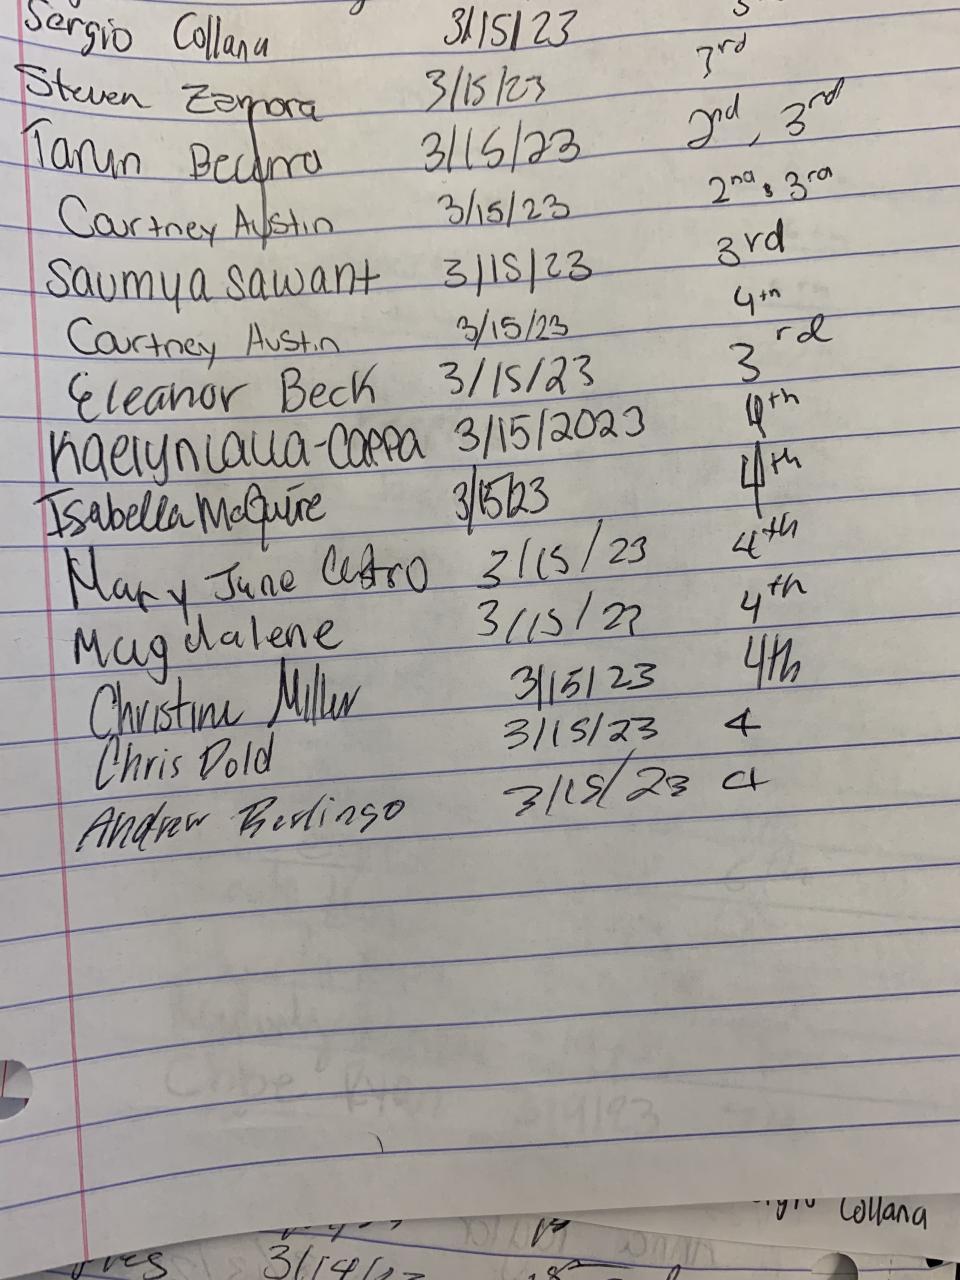 Sergio Collana 3/15/23
Steven Zamora 3/15/23 3rd
Tarun 3/15/23 2nd, 3rd
Courtney Austin 3/15/23 2nd & 3rd
Saumya Sawant 3/15/23 3rd
Courtney Austin 3/15/23 4th
Eleanor Beck 3/15/23 3rd
Kaelyn Lalla-Cappa 3/15/2023 4th
Isabella McGuire 3/15/23 4th
Mary June Castro 3/15/23 4th
Magdalene 3/15/23 4th
Christine Miller 3/15/23 4th
Chris Dold 3/15/23 4
Andrew Berlingo 3/15/23 4
Collana
3/14/23